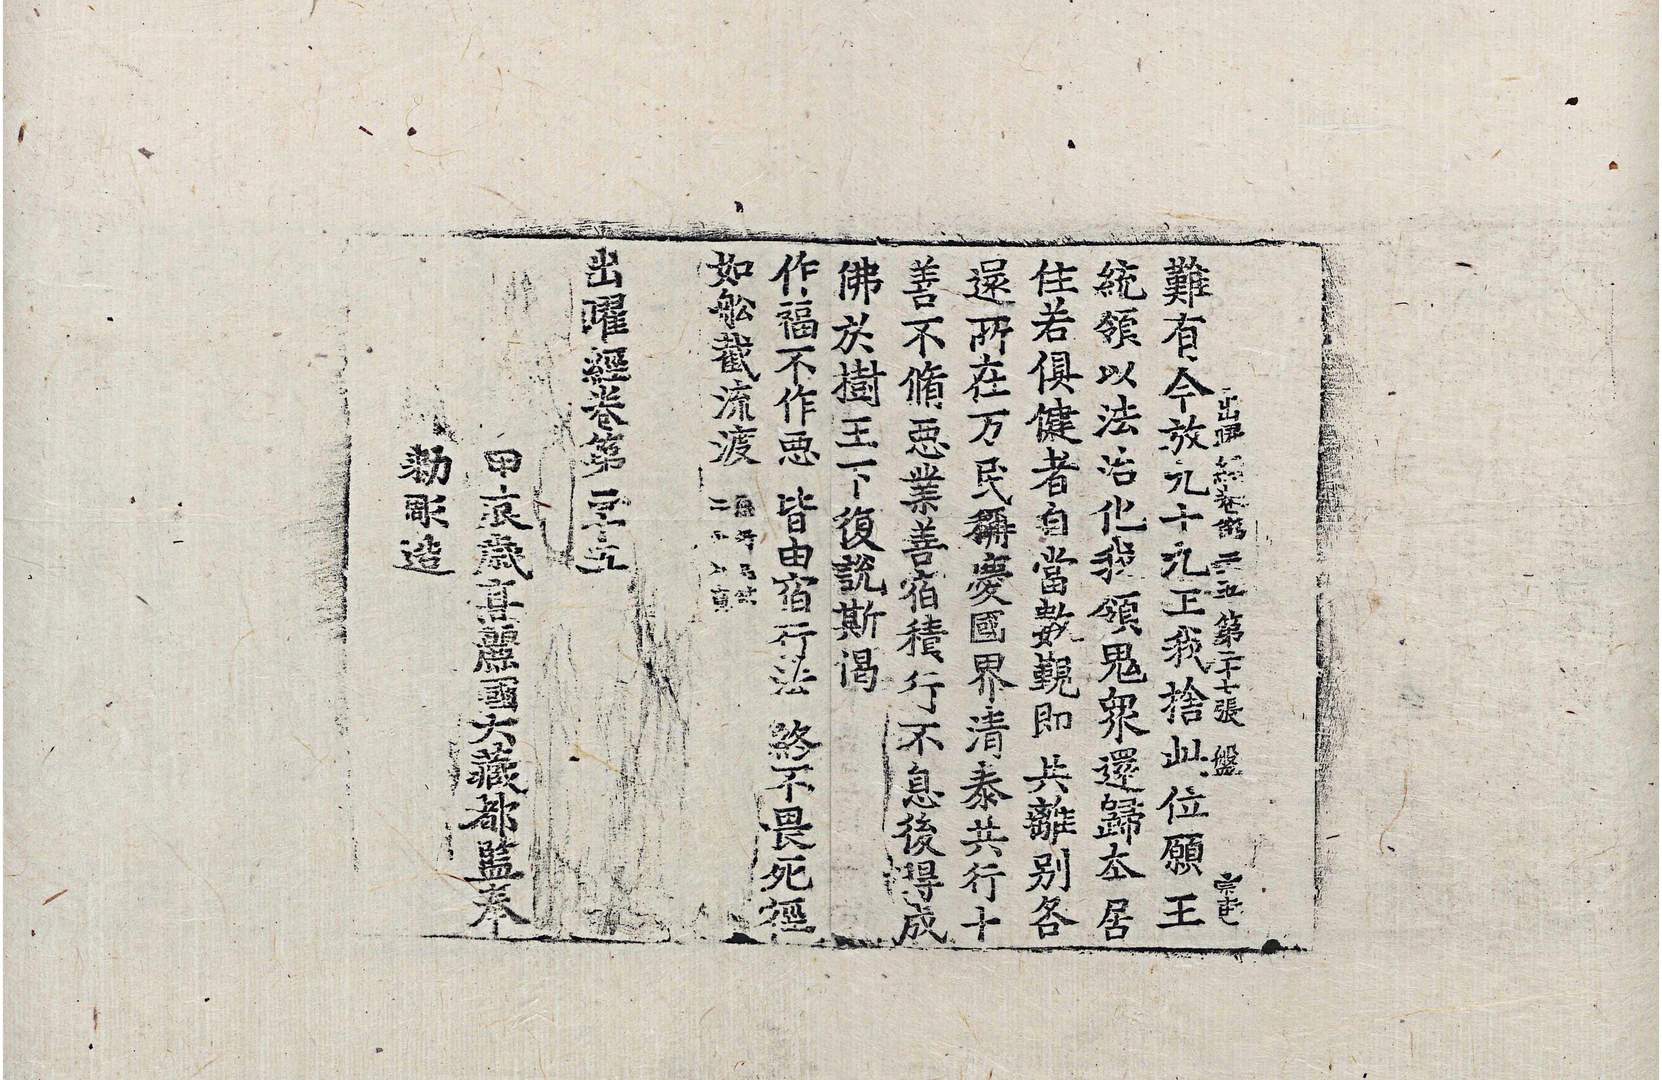 出曜經卷第二十五 第二十七張 盤
難有今放九十九王我捨此位願王
統領以法治化我領鬼衆還歸本居
住若俱健者自當數覲即共離別各
還所在万民稱慶國界清泰共行十
善不脩惡業善宿積行不息後得成
佛於樹王下復說斯偈
作福不作惡 皆由宿行法 終不畏死徑
如舩截流渡
出曜經卷第二十五
甲辰歳高麗國大藏都監奉
勅彫造